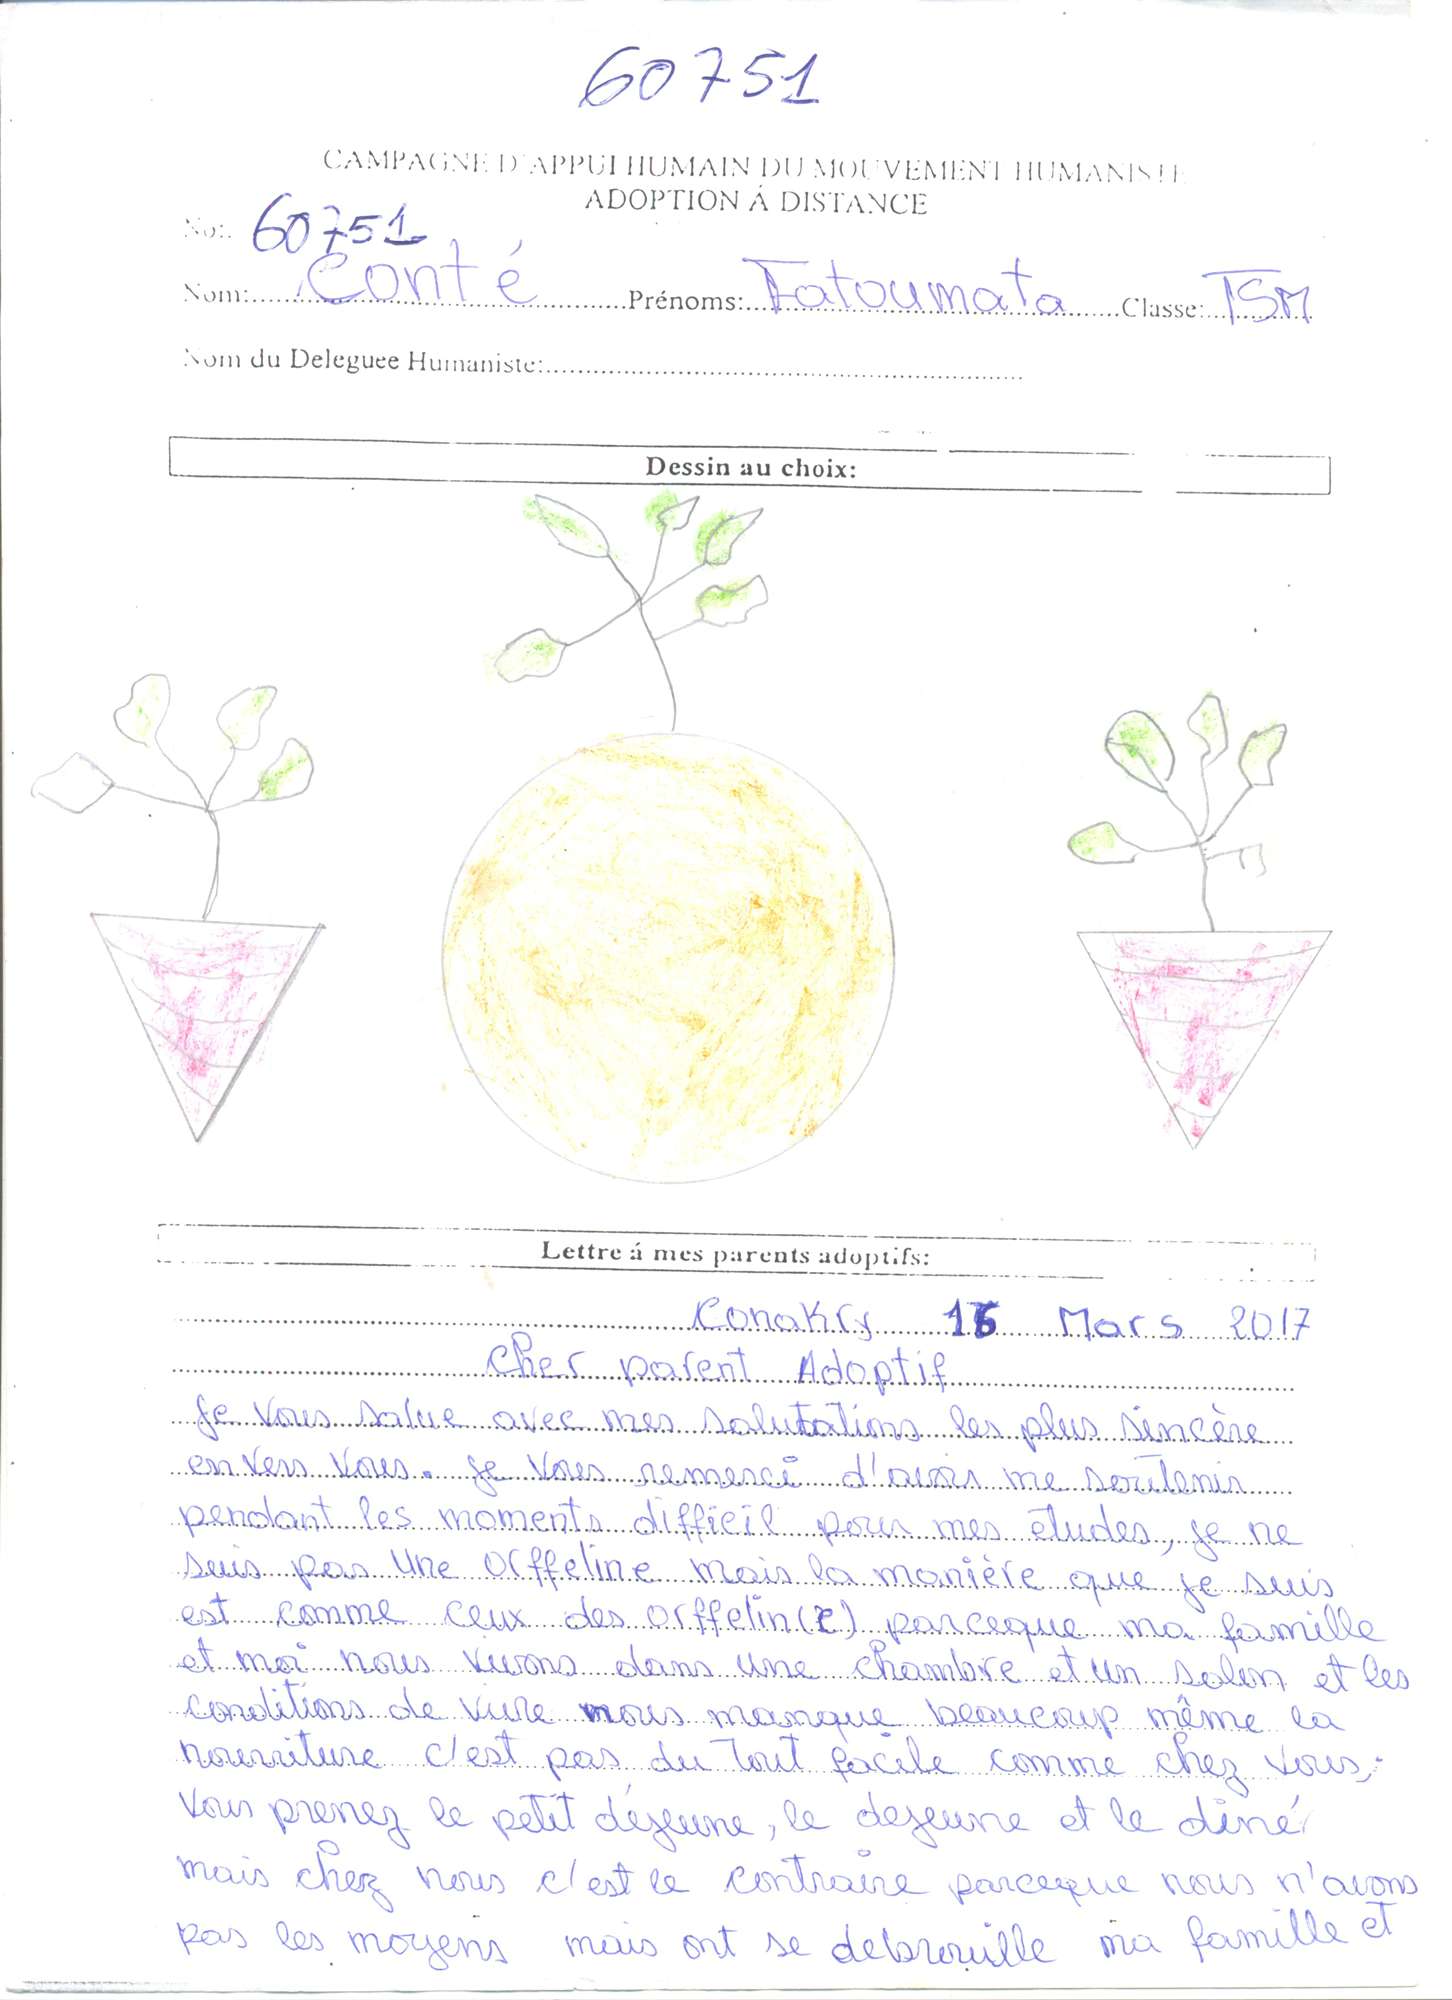 60751
CAMPAGNE D'APPUI HUMAIN DU MOUVEMENT HUMANISTE
ADOPTION Á DISTANCE
No: 60751
Nom: Conté Prénoms: Fatoumata Classe: TSM
Nom du Deleguee Humaniste:
Dessin au choix:
Lettre á mes parents adoptifs:
Conakry 16 Mars 2017
Cher parent Adoptif
Je Vous salue avec mes salutations les plus sincère
en vers vous. Je vous remerci d'avoir me soutenir
pendant les moments difficil pour mes études, je ne
suis pas une orffeline mais la manière que je suis
est comme ceux des orffelin(e) parceque ma famille
et moi nous vivons dans une chambre et un salon et les
conditions de vivre nous manque beaucoup même la
nourriture c'est pas du tout facile comme chez vous,
Vous prenez le petit déjeune, le dejeune et le diné
mais chez nous c'est le contraire parceque nous n'avons
pas les moyens mais ont se debrouille ma famille et